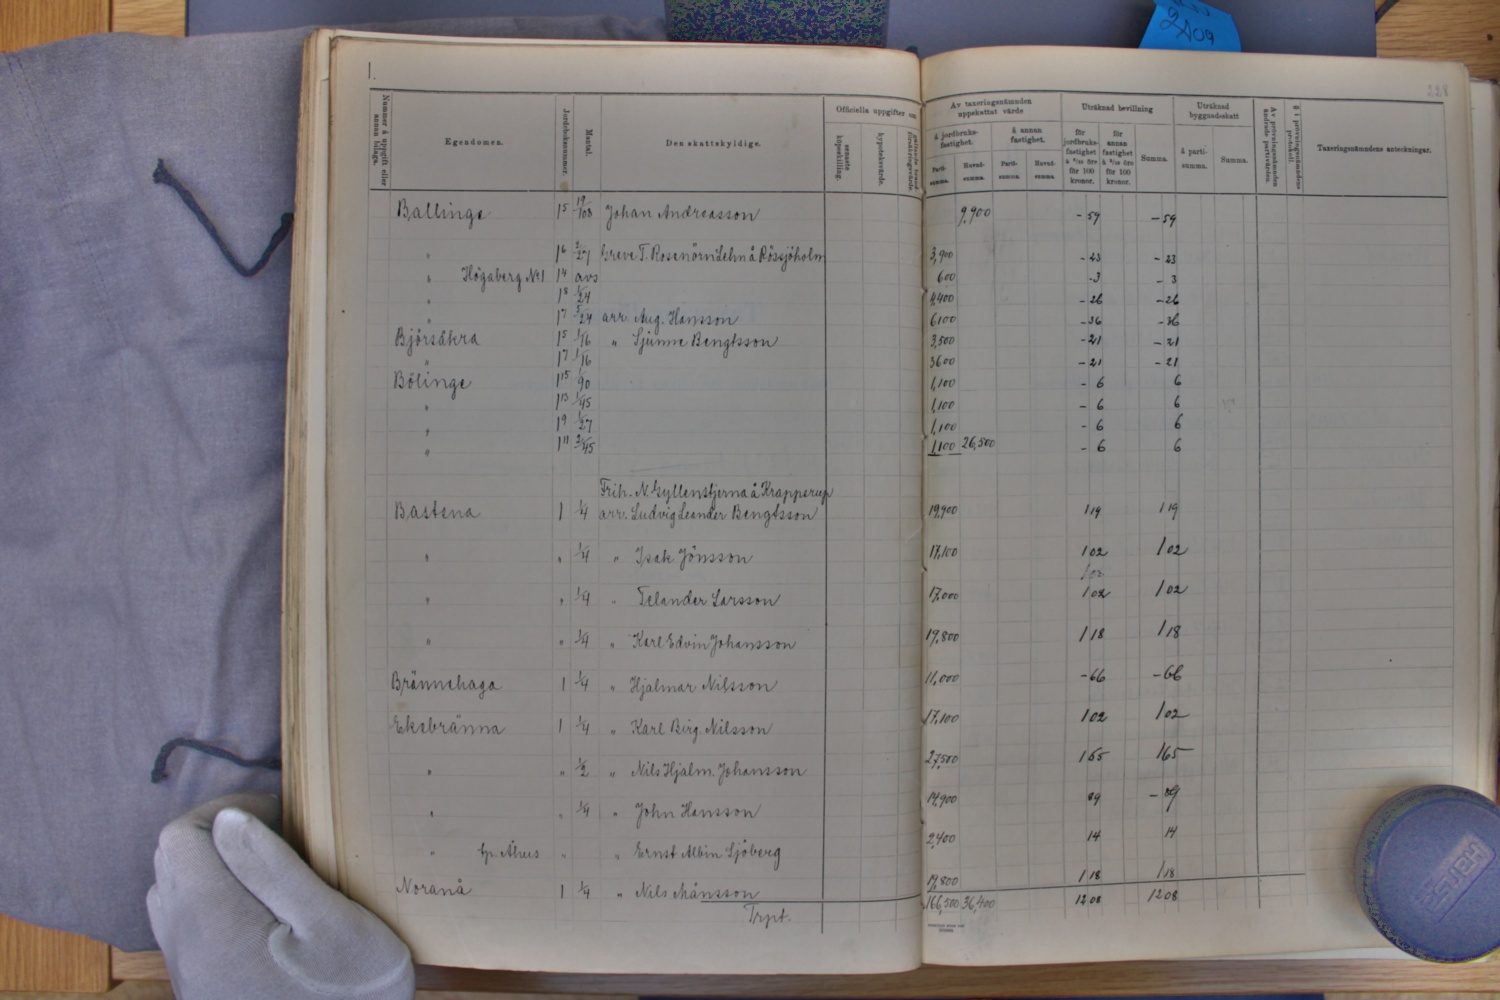 2409
1.
228
Nummer å uppgift eller annan bilaga.
Egendomen.
Jordeboksnummer.
Mantal.
Den skattskyldige.
Officiella uppgifter om
senaste köpeskilling.
hypoteksvärde.
Av taxeringsnämnden uppskattat värde
å jordbruksfastighet.
å annan fastighet.
Partisumma.
Huvudsumma.
Partisumma.
Huvudsumma.
Uträknad bevillning
för jordbruksfastighet à 6/10 öre för 100 kronor.
för annan fastighet à 5/10 öre för 100 kronor.
Summa.
Uträknad byggnadsskatt
å partisumma.
Summa.
Av prövningsnämnden ändrade partivärden.
§ i prövningsnämndens protokoll.
Taxeringsnämndens anteckningar.
Ballinge 1⁵ 19/108 Johan Andreasson 9,900 - 59 - 59
" 1⁶ 2/27 Greve T. Rosenörn Lehn å Rössjöholm 3,900 - 23 - 23
" Högaberg No 1 1⁴ avs 600 - 3 - 3
" 1⁸ 1/24 4,400 - 26 - 26
" 1⁷ 5/24 arr. Aug. Hansson 6100 - 36 - 36
Björsåkra 1⁵ 1/16 " Sjunne Bengtsson 3,500 - 21 - 21
" 1⁷ 1/16 3600 - 21 - 21
Bölinge 1¹⁵ 1/90 1,100 - 6 6
" 1¹³ 1/45 1,100 - 6 6
" 1⁹ 1/27 1,100 - 6 6
" 1¹¹ 2/45 1,100 26,500 - 6 6
Frih. N. Gyllenstjerna å Krapperup
Bastena 1 1/4 arr. Ludvig Leander Bengtsson 19,900 1 19 1 19
" " 1/4 " Isak Jönsson 17,100 1 02 1 02
1 02
" " 1/4 " Telander Larsson 17,000 1 02 1 02
" " 1/4 " Karl Edvin Johansson 19,800 1 18 1 18
Brännehaga 1 1/4 " Hjalmar Nilsson 11,000 - 66 - 66
Eksbränna 1 1/4 " Karl Birg. Nilsson 17,100 1 02 1 02
" " 1/2 " Nils Hjalm. Johansson 27,500 1 65 1 65
" " 1/4 " John Hansson 14,900 89 - 89
" " " Ernst Albin Sjöberg 2,400 14 14
Noranå 1 1/4 " Nils Månsson 19,800 1 18 1 18
Trpt. 166,500 36,400 12 08 12 08